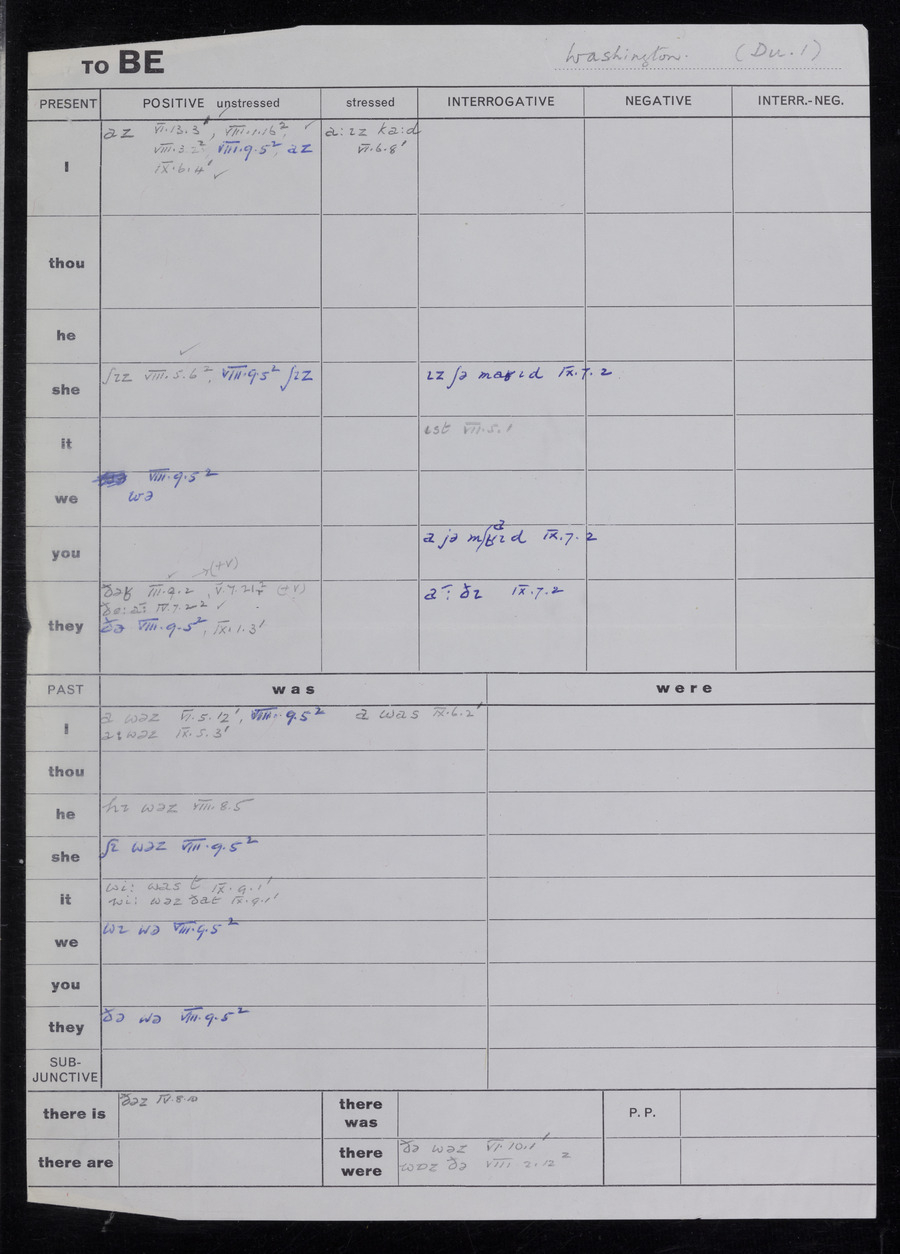 TO BE Washington. (Du. 1)
PRESENT POSITIVE unstressed stressed INTERROGATIVE NEGATIVE INTERR.-NEG.
I az VI.13.3¹, VIII.1.16², a:ɪz ka:d
VIII.3.2², VIII.9.5² az VI.6.8¹
IX.6.4¹
thou
he
she ʃɪz VIII.5.6², VIII.9.5² ʃɪz ɪz ʃə maʁɪd IX.7.2
it ɪst VII.5.1
we VIII.9.5²
wə
you a jə maʁɪd IX.7.2
→(+V)
they ðəʁ III.9.2, V.7.21² (+V) a: ðɪ IX.7.2
IV.7.22
ðə VIII.9.5², IX.1.3¹
PAST was were
I a wəz VI.5.12¹, VIII.9.5² a was IX.6.2¹
a: wəz IX.5.3¹
thou
he hɪ wəz VIII.8.5
she ʃɪ wəz VIII.9.5²
it wi: was t IX.9.1¹
wi: wəz ðat IX.9.1¹
we wɪ wə VIII.9.5²
you
they ðə wə VIII.9.5²
SUB-
JUNCTIVE
there is ðəz IV.8.10 there was P.P.
there are there were ðə wəz VI.10.1¹
wɒz ðə VIII 2.12²